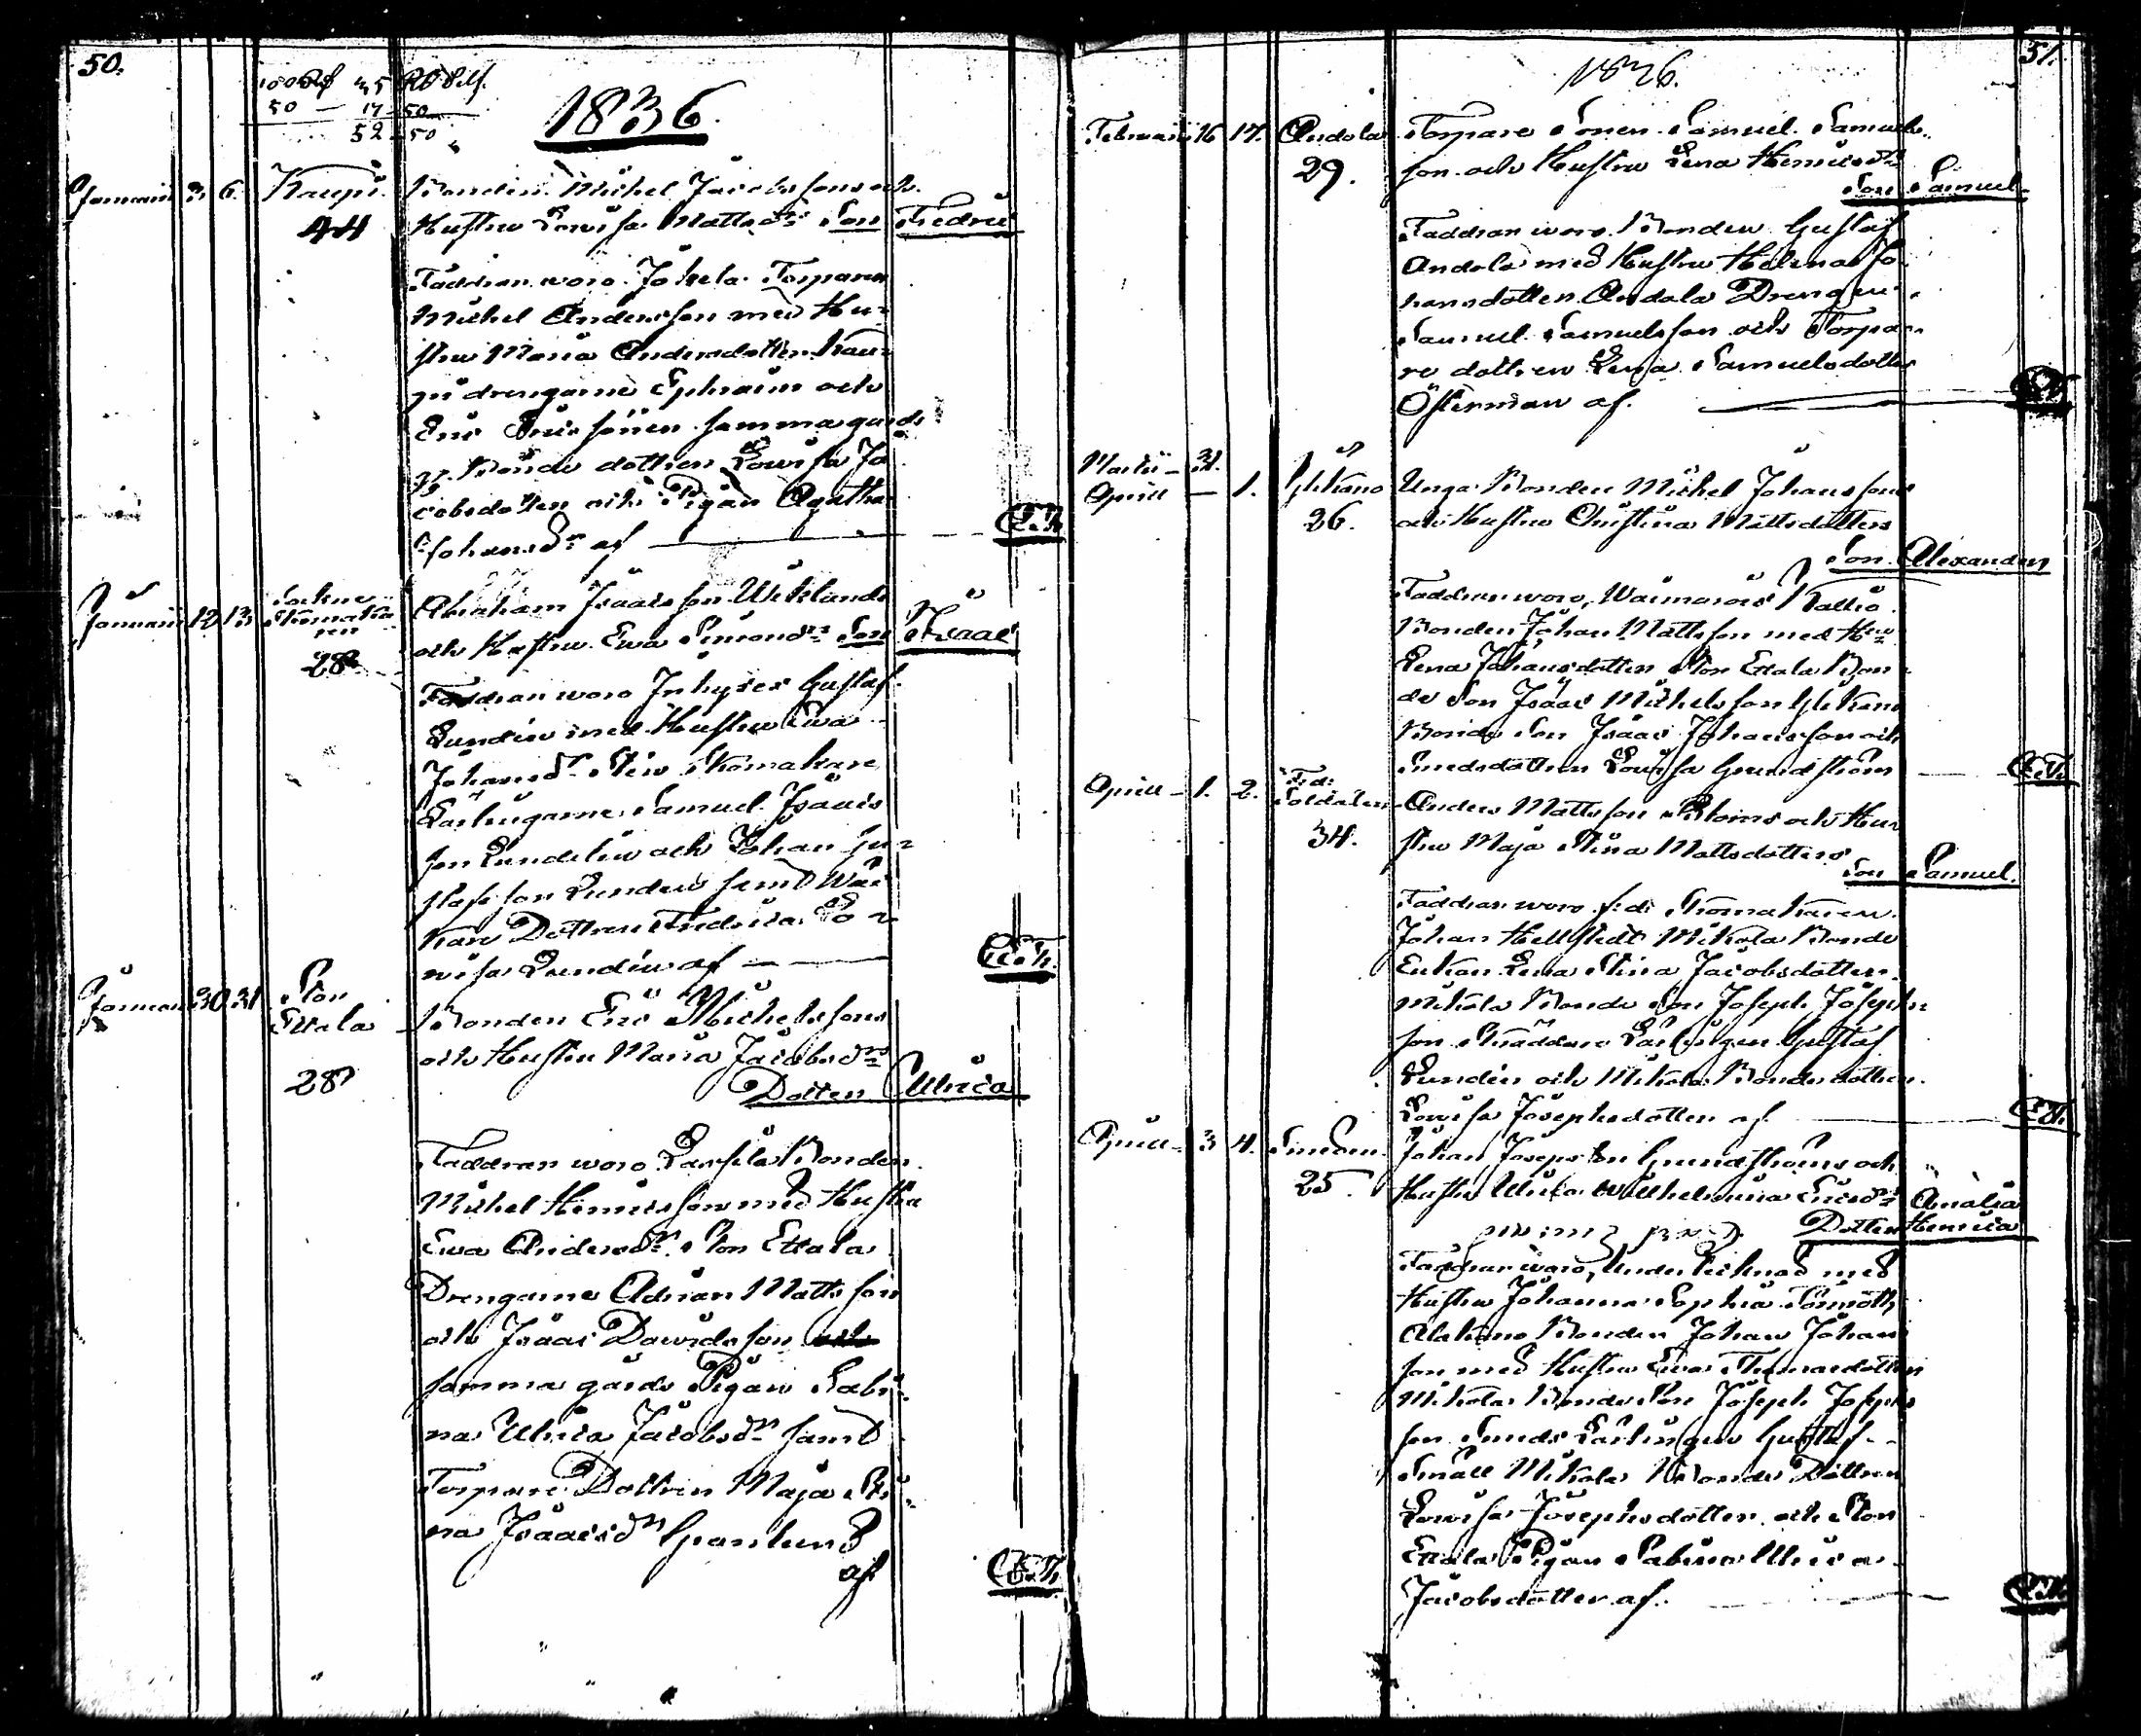 50.
50 — 17 - 50
52 - 50
1836.
Januarii 3 6. Kaupi Bonden Michel Jacobssons och
44 Hustru Lovisa Mattsdr Son Fredric
Faddran woro Jokela Torparen
Michel Andersson med Hu-
stru Maria Andersdotter Kau-
pi drengarne Ephraim och
Eric Ericssöner samma gårds
Bonde dottren Lovisa Ja
cobsdotter och Pigan Agatha
Johansdr af
Januarii 12 13 Sockne Abraham Isaacsson Wiklunds
Skomakaren och Hustru Ewa Simonsdr Son Isaac
28
Faddran woro Inhyses Gustaf
Lundin med Hustru Ewa
Johansdr Skomakare
Lärlingarne Samuel Isaacs
son Lundelin och Johan Gu-
stafsson Lundin samt
Dottren Fredrica Lo-
wisa Lundin af
Januarii 30 31 Stor Bonden Eric Michelssons
Ettala och Hustru Maria Jacobsdr
28 Dotter Ulrica
Faddran woro Bonden
Michel Henricsson med Hustru
Ewa Andersdr Stor Ettala
Drengarne Adrian Mattsson
och Isaac Davidsson och
samma gårds Pigan Sabi-
na Ulrica Jacobsdr samt
Torpare Dottren Maja Sti-
na Isaacsdr Granlund
af
51.
1836.
Februarii 16 17. Andola Torpare Sonen Samuel Samuels-
29. son och Hustru Lena Henricsdr
Son Samuel
Faddran woro Bonden Gustaf
Andola med Hustru Helena Jo-
hansdotter Andola Drengen
Samuel Samuelsson och Torpa-
re dottren Lena Samuelsdotter
Österman af.
Martii — 31.
April — 1. Ylikano Unga Bonden Michel Johanssons
26. och Hustru Christina Mattsdotters
Son Alexander
Faddran woro, Kallio
Bonden Johan Mattsson med Hu
Lena Johansdotter Stor Ettala Bon-
de Son Isaac Michelsson Ylikano
Bonde Son Isaac Johansson och
Smedsdottren Lovisa Grundström
April — 1. 2. Förd: Soldaten Anders Mattsson Bloms och Hu
34. stru Maja Stina Mattsdotters
Son Samuel.
Faddran woro f:d: Skomakaren
Johan Hellstedt Mikola Bonde
Enkan Lena Stina Jacobsdotter
Mikola Bonde Son Joseph Josephs
son Skräddare Lärlingen Gustaf
Lundin och Mikola Bonde dottren
Lovisa Josephsdotter af.
April — 3 4. Smeden Johan Josephsson Grundströms och
25. Hustru Ulrica Wilhelmina Ericsdr Amalia
Dotter Henrica
Faddran woro, Undertecknad med
Hustru Johanna Sophia
Alakano Bonden Johan Johans
son med Hustru Ewa Thomasdotter
Mikola Bonde Son Joseph Josephs
son Smeds Lärlingen Gustaf
Småll Mikola Bonde Dottren
Lovisa Josephsdotter och Stor
Ettala Pigan Sabina Ulrica
Jacobsdotter af.